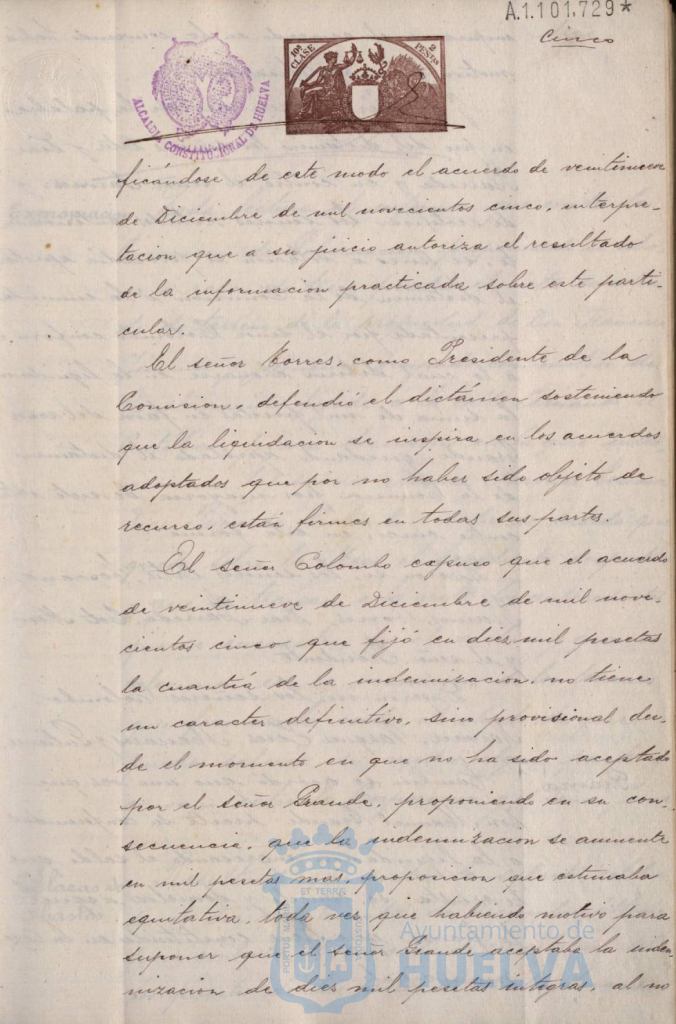 A.1.101.729*
Cinco
10ª CLASE
2 PESETAS
ALCALDIA CONSTITUCIONAL DE HUELVA
ficándose de este modo el acuerdo de veintinueve
de Diciembre de mil novecientos cinco, interpre-
tacion que á su juicio autoriza el resultado
de la informacion practicada sobre este parti-
cular.
El señor Torres, como Presidente de la
Comision, defendió el dictámen sosteniendo
que la liquidacion se inspira en los acuerdos
adoptados que por no haber sido objeto de
recurso, están firmes en todas sus partes.
El señor Colombo expuso que el acuerdo
de veintinueve de Diciembre de mil nove-
cientos cinco que fijó en diez mil pesetas
la cuantía de la indemnizacion, no tiene
un caracter definitivo, sino provisional des-
de el momento en que no ha sido aceptado
por el señor Grande, proponiendo en su con-
secuencia, que la indemnizacion se aumente
en mil pesetas mas, proposicion que estimaba
equitativa, toda vez que habiendo motivo para
suponer que el señor Grande aceptaba la indem-
nizacion de diez mil pesetas íntegras, al no
PORTUS MARIS ET TERRÆ CUSTODIA
Ayuntamiento de
HUELVA